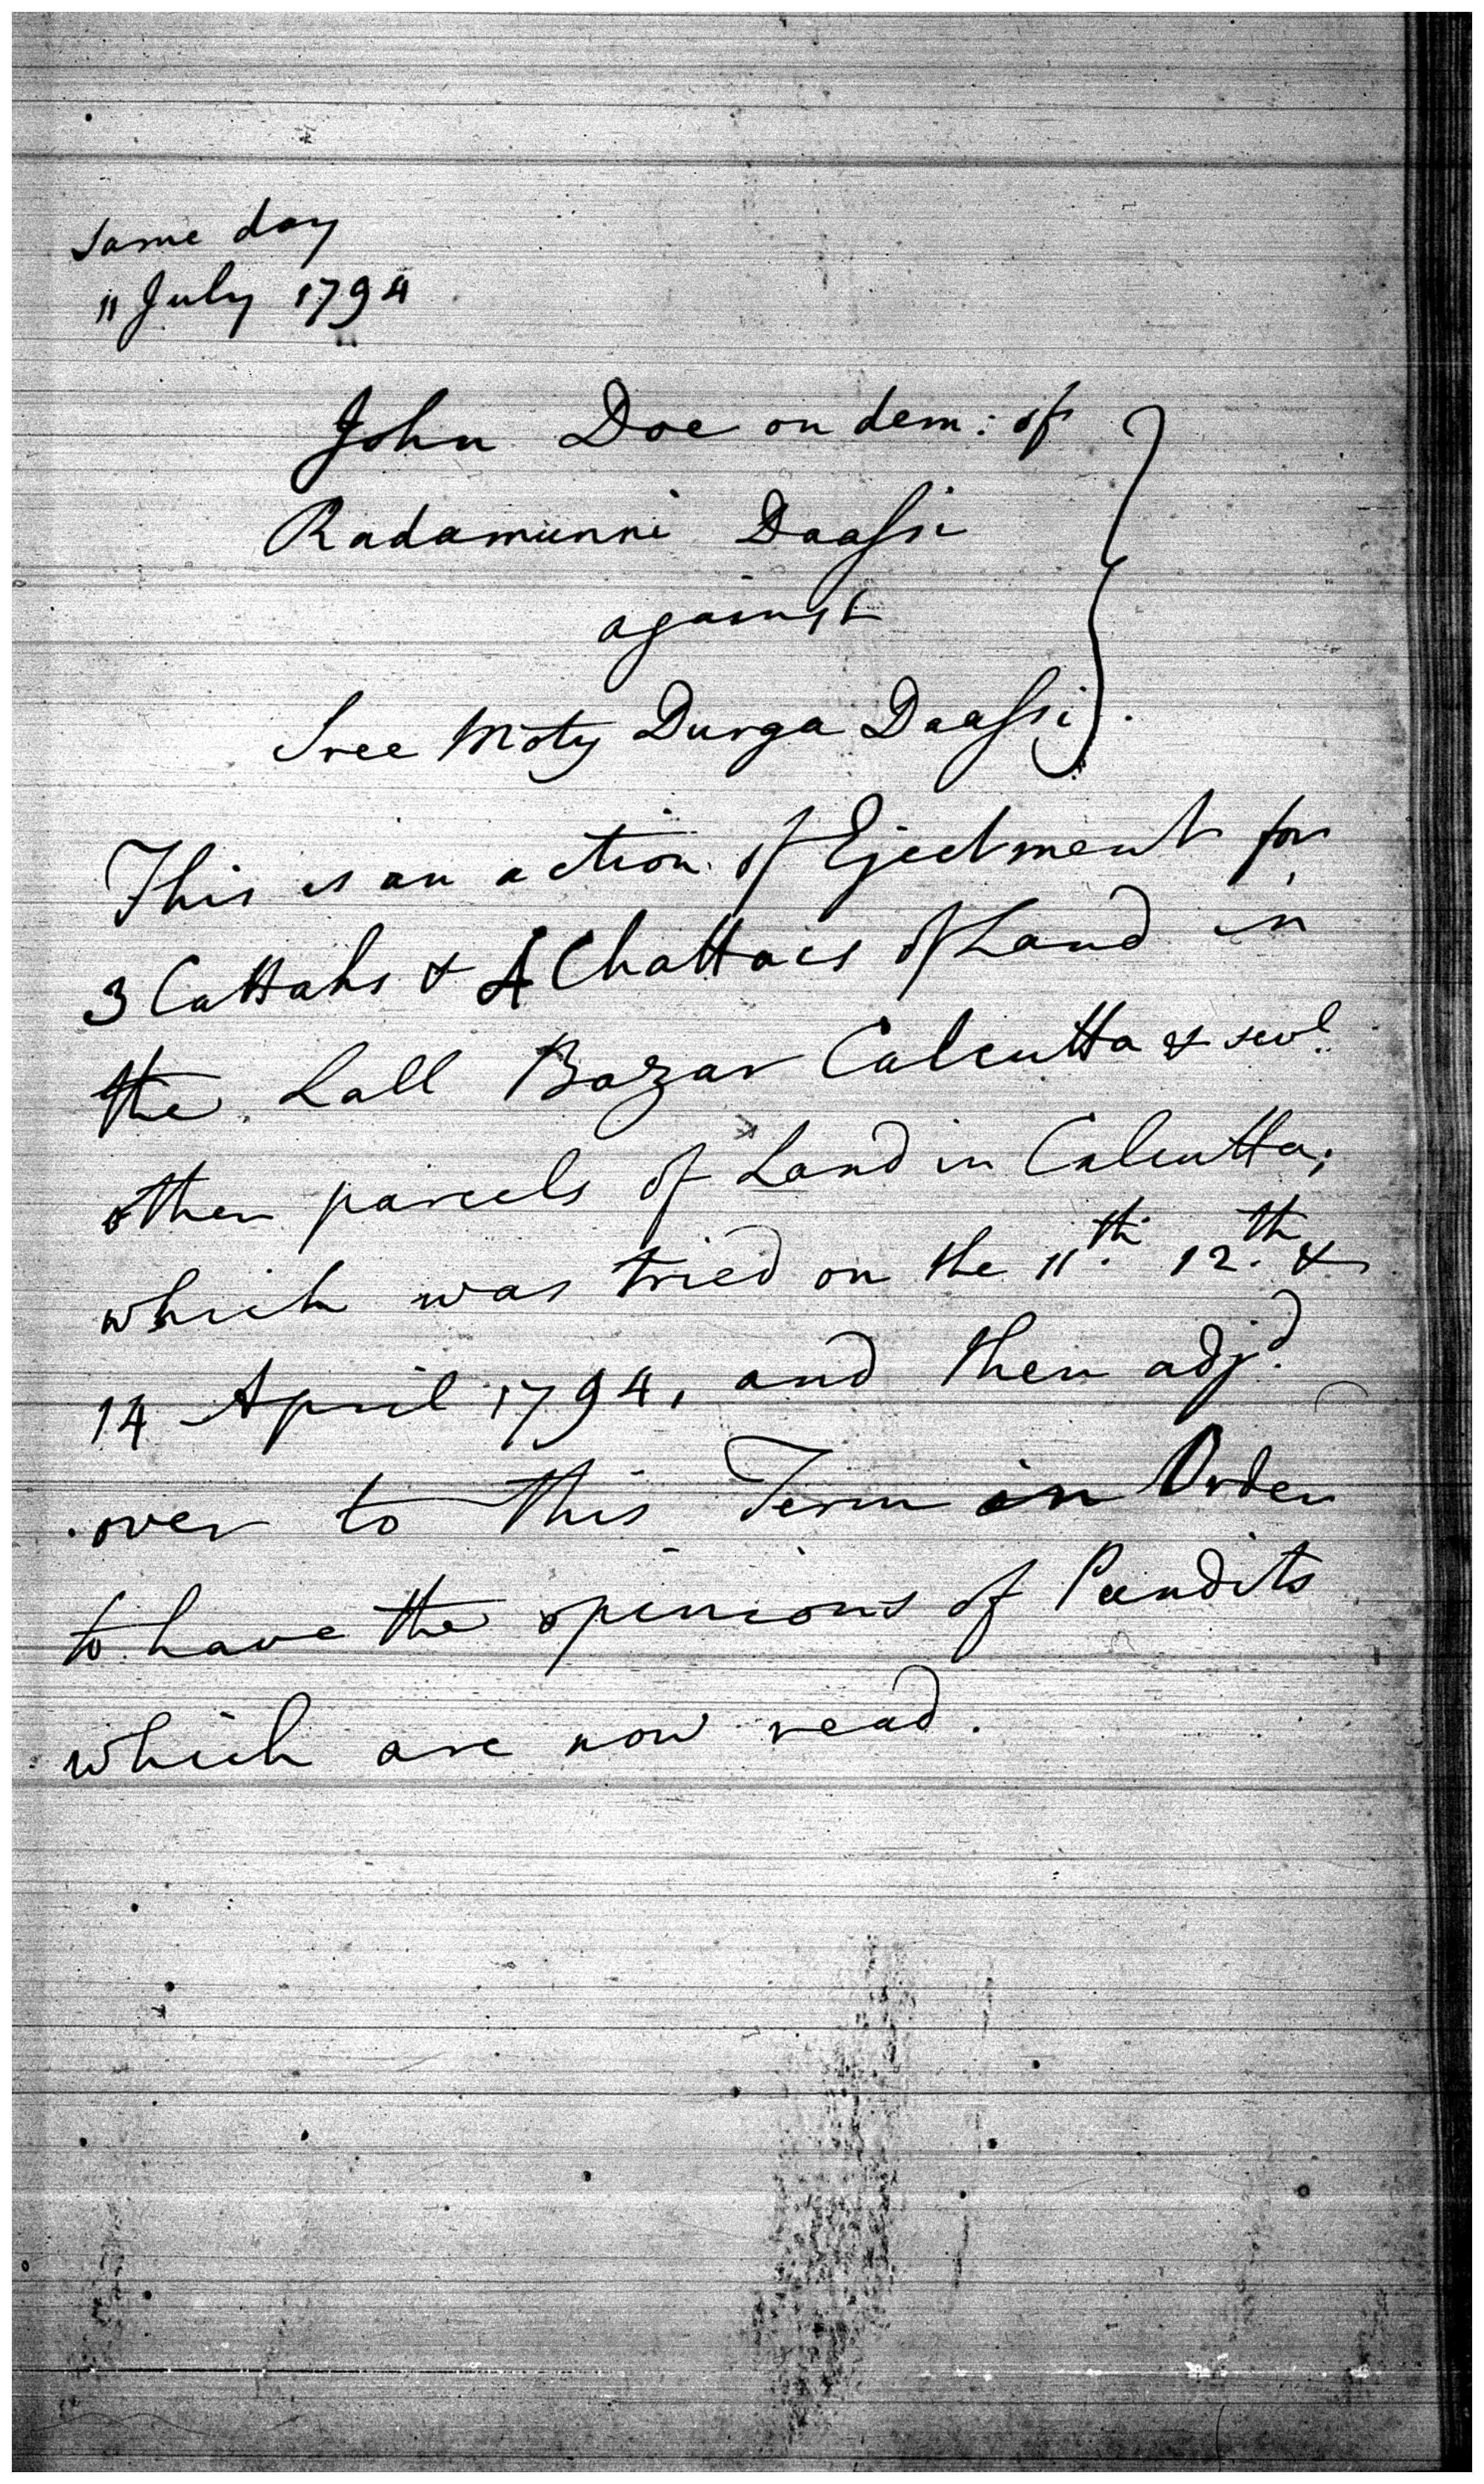 Same day
11 July 1794
John Doe on dem: of
Radamunni Daassi
against
Sree Moty Durga Daassi.
This is an action of Ejectment for
3 Cattahs & 4 Chattacs of Land in
the Lall Bazar Calcutta & sevl.
other parcels of Land in Calcutta;
which was tried on the 11th. 12th. &
14 April 1794, and then adjd.
over to this Term in Order
to have the opinions of Pundits
which are now read.